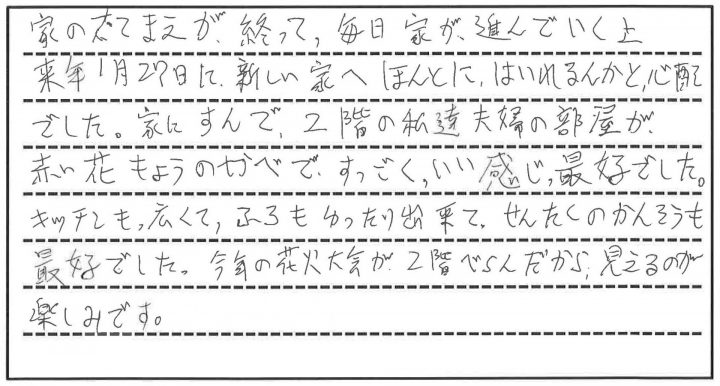 家のたてまえが、終って、毎日家が、進んでいく上
来年1月27日に、新しい家へほんとに、はいれるんかと、心配
でした。家にすんで、2階の私達夫婦の部屋が、
赤い花もようのかべで、すっごく、いい感じ、最好でした。
キッチンも、広くて、ふろもゆったり出来て、せんたくのかんそうも
最好でした。今年の花火大会が、2階べらんだから、見えるのが
楽しみです。